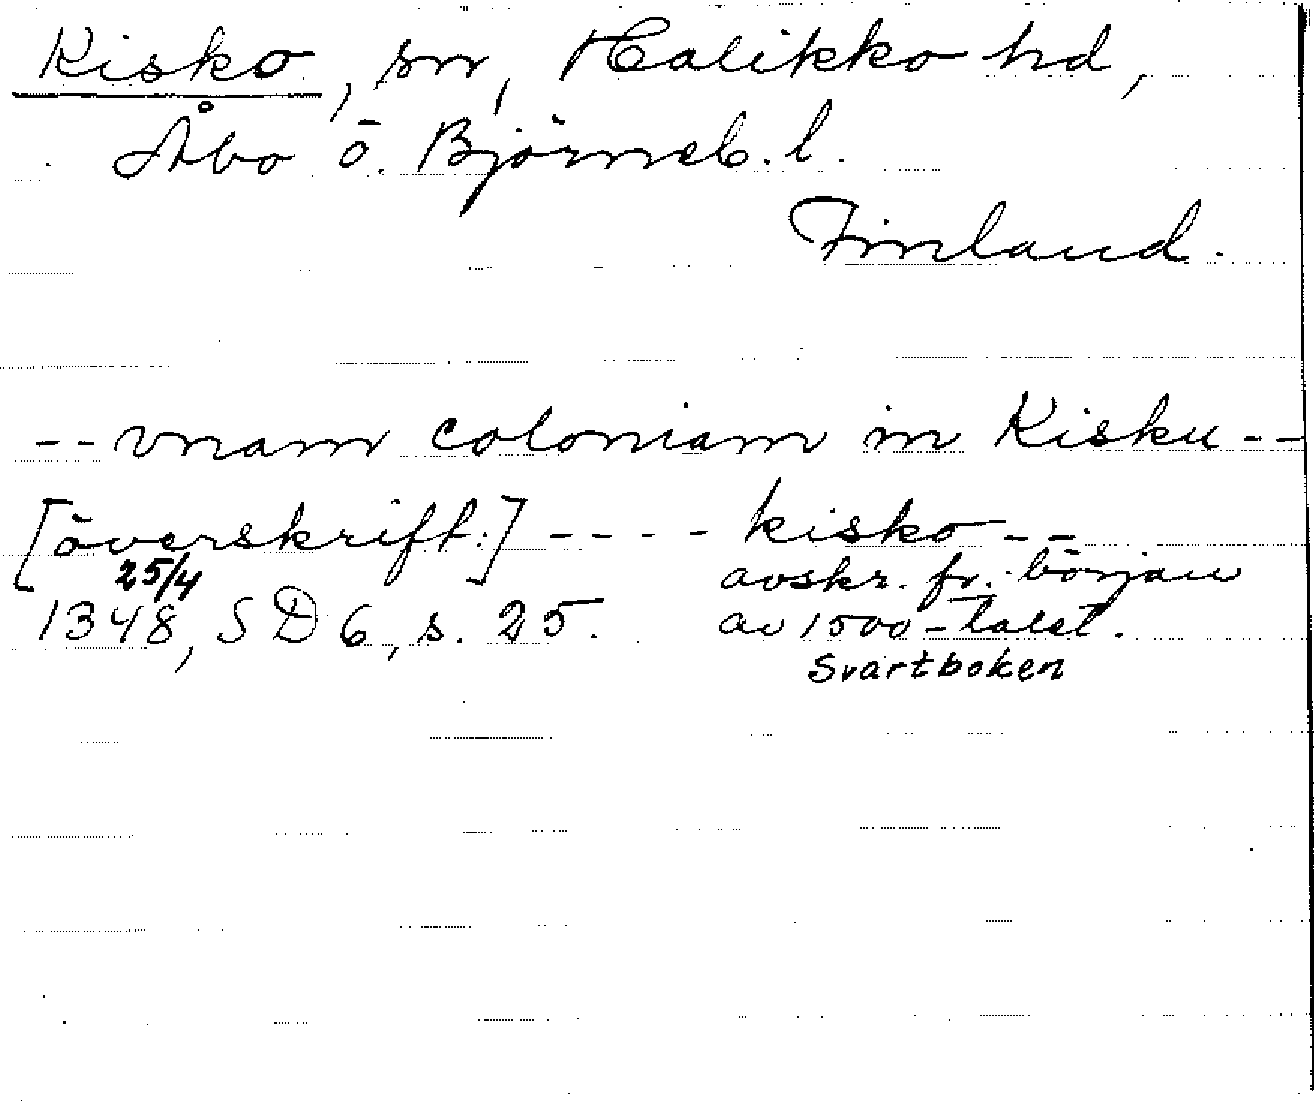 Kisko, sn, Halikko hd,
Åbo o. Björneb. l.
Finland.
-- vnam coloniam in Kisku --
[överskrift:] ---- kisko --
25/4
1348, SD 6, s. 25.
avskr. fr. början
av 1500-talet.
Svartboken